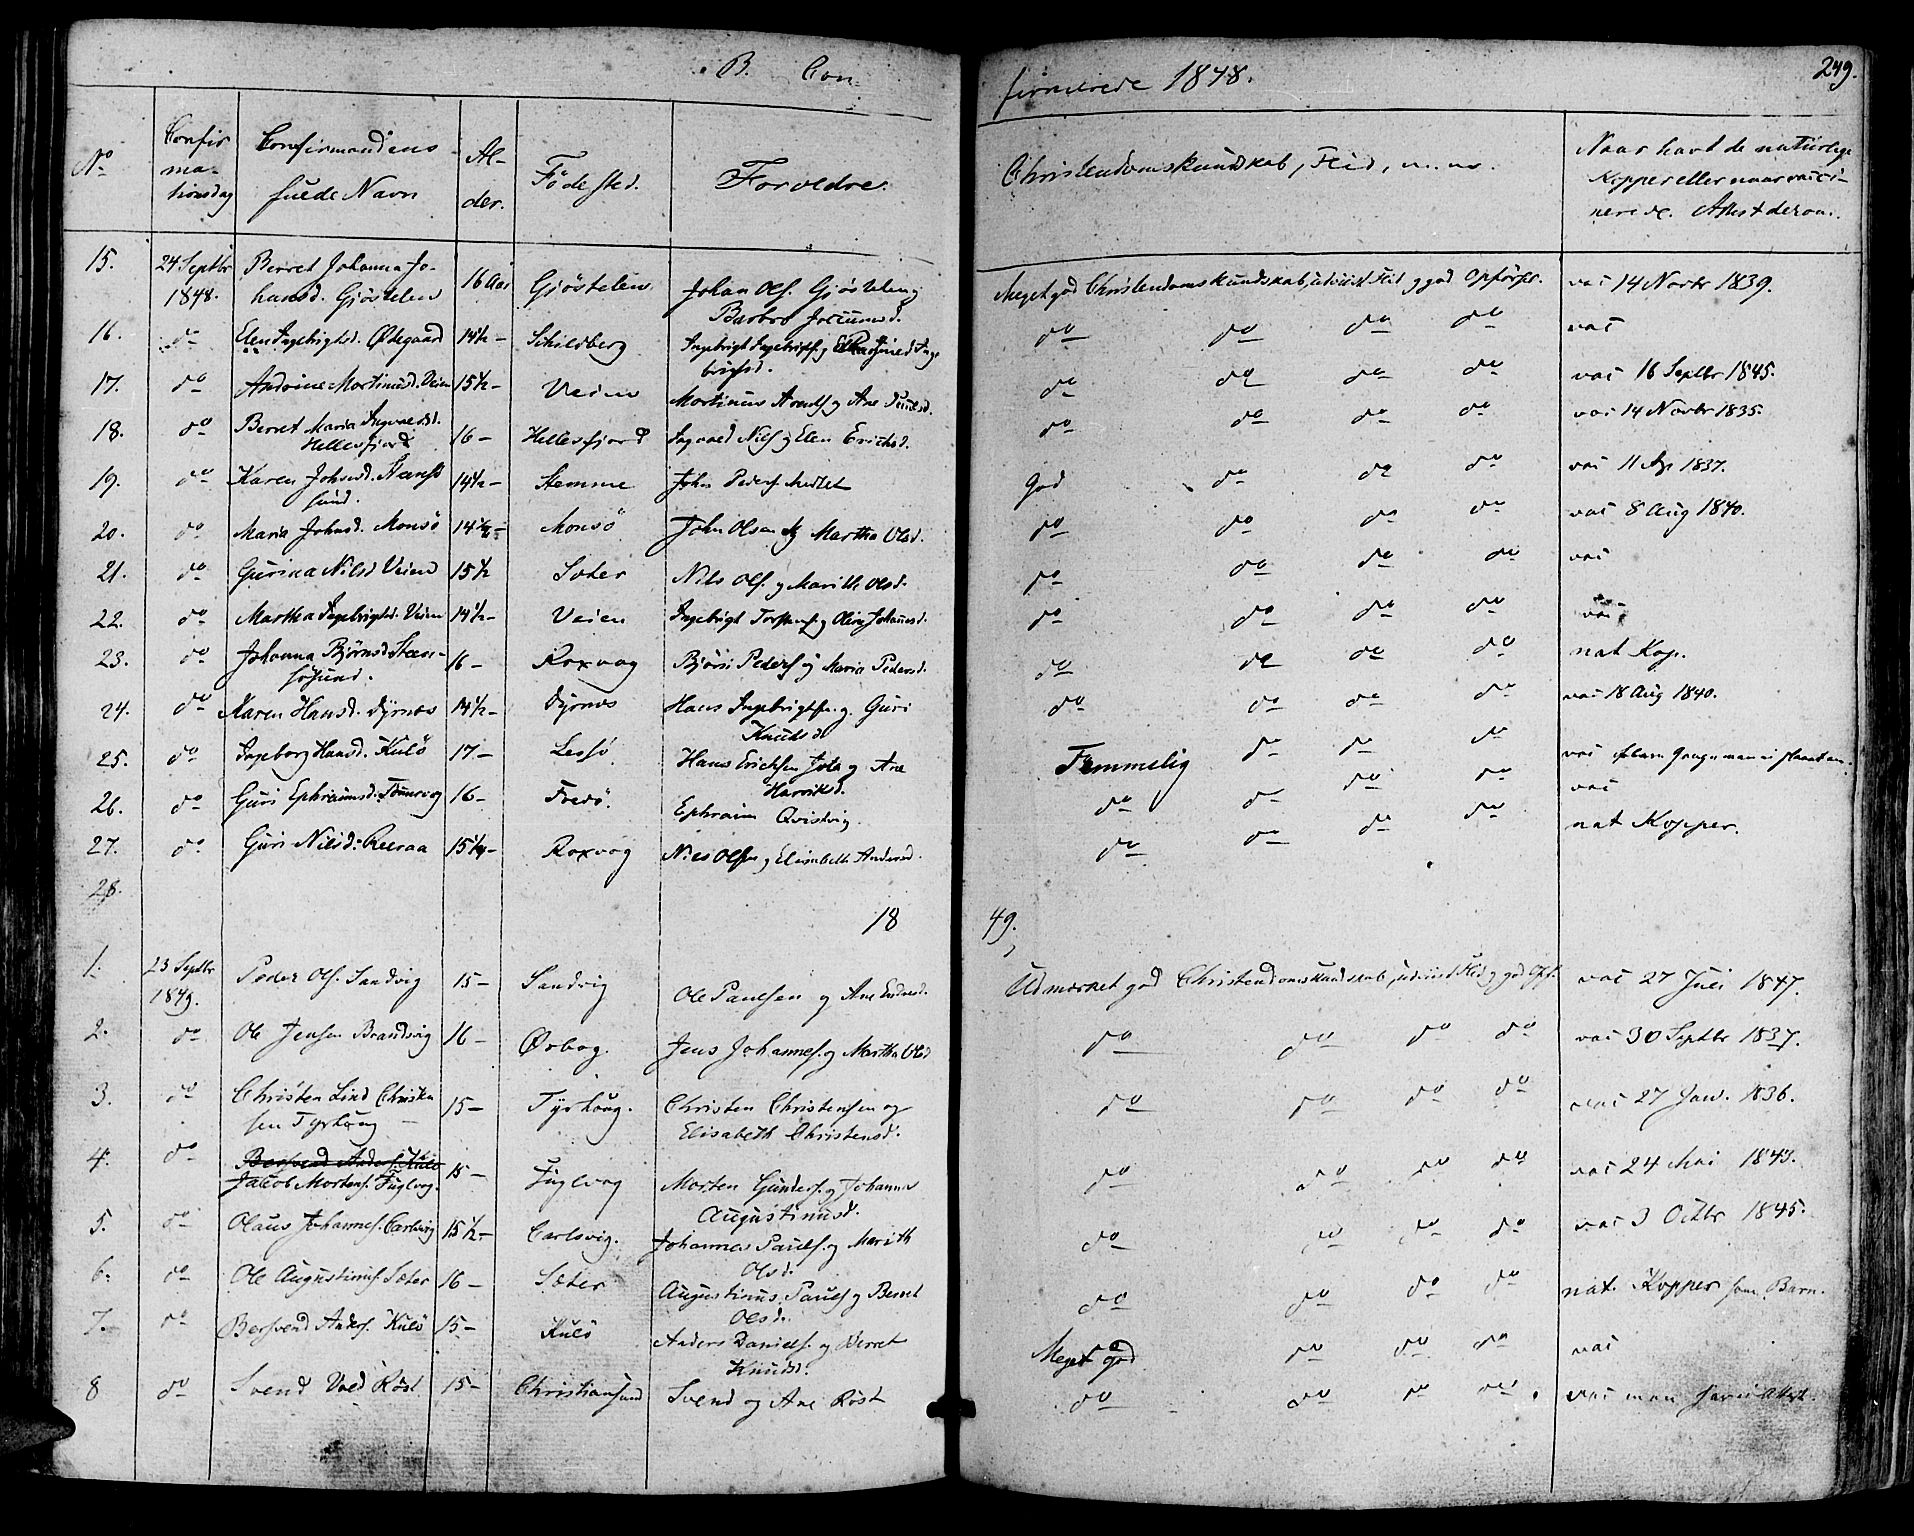 B. Con-
firmerede 1848.
249.
No
Confir
ma-
tionsdag
Confirmandens
fulde Navn
Al-
der.
Födested.
Forældre.
Christendomskundskab, Flid, m. m.
Naar havt de naturlige
Kopper eller naar vacci-
nerede. Attest derom.
15. 24 Septbr 1848. Berret Johanna Jo-
hansd. Gjöstelen 16 Aar Gjöstelen Johan Ols. Gjöstelen
Barbro
Meget god Christendomskundskab, udviist Flid og god vac 14 Novbr 1839.
16. do Elen Ingebrigtsd. Ødegaard 14½ - Schildberg Ingebrigt
brigtsd.
do do do do vac
17. do Mortinusd. Veien 15½ - Veien Mortinus og Ane
do do do do vac 16 Septbr 1845.
18. do Berret Maria Ingvaldsd.
Hellesfjord 16 - Hellesfjord Ingvald Nils. og Elen Erichsd.
do do do do vac 14 Novbr 1835.
19. do Karen Johnsd.
sund. 14½ - Stemme John Peders.
God do do do vac 11 1837.
20. do Maria Johnsd. Monsö 14½ - Monsö John Olsen og Martha Olsd.
do do do do vac 8 Aug 1840.
21. do Gurina Nilsd Veien 15½ Sæter Nils Ols. og Marith Olsd.
do do do do vac
22. do Martha Ingebrigtsd. Veien 14½ - Veien Ingebrigt og
do do do do vac
23. do Johanna Björnsd. Steen-
sösund. 16 - Roxvog Björn Peders. og Maria Pedersd.
do do do do nat Kop.
24. do Karen Hansd. Dyrnæs 14½ - Dyrnæs Hans og Guri
Knudsd
do do do do vac 18 Aug 1840.
25. do Ingeborg Hansd. Kulö 17 - Hans Erichsen og Ane
Temmelig do do do vac
26. do Guri Ephraimsd. 16 - Fredö. Ephraim Qvistvig.
do do do do vac
27. do Guri Nilsd. 15½ - Roxvog Nils Olsen og Elisabeth Andersd.
do do do do nat Kopper.
28.
18 49.
1. 23 Septbr 1849. Peder Ols. Sandvig 15 - Sandvig Ole Paulsen og Ane
Udmærket god Christendomskundskab, udviist Flid og god Opf. vac 27 Juli 1847.
2. do Ole Jensen Brandsvig 16 - Ørbog. Jens Johannes. og Martha Olsd
do do do do vac 30 Septbr 1837.
3. do Christen Lind Christen
sen Tyrhoug 15 - Tyrhoug. Christen Christensen og
Elisabeth Christensd.
do do do do vac 27 Jan. 1836.
4. do Bersvend Anders. Kulö
Jacob Mortens. Fuglvog. 15 - Fuglvog Morten Gunders. og Johanna
Augustinusd.
do do do do vac 24 Mai 1847.
5. do Olaus Johannes. Carlsvig 15½ - Carlsvig. Johannes Pauls. og Marith
Olsd.
do do do do vac 3 Octbr 1845.
6. do Ole Augustinus. Sæter 16 - Sæter Augustinus Pauls. og Berret
Olsd.
do do do do nat. Kopper som Barn.
7. do Bersvend Anders. Kulö 15 - Kulö Anders Daniels. og Berret
Knudsd.
Meget god do do do vac
8 do Svend Röst 15 - Christiansund Svend og Ane Röst
do do do do vac men